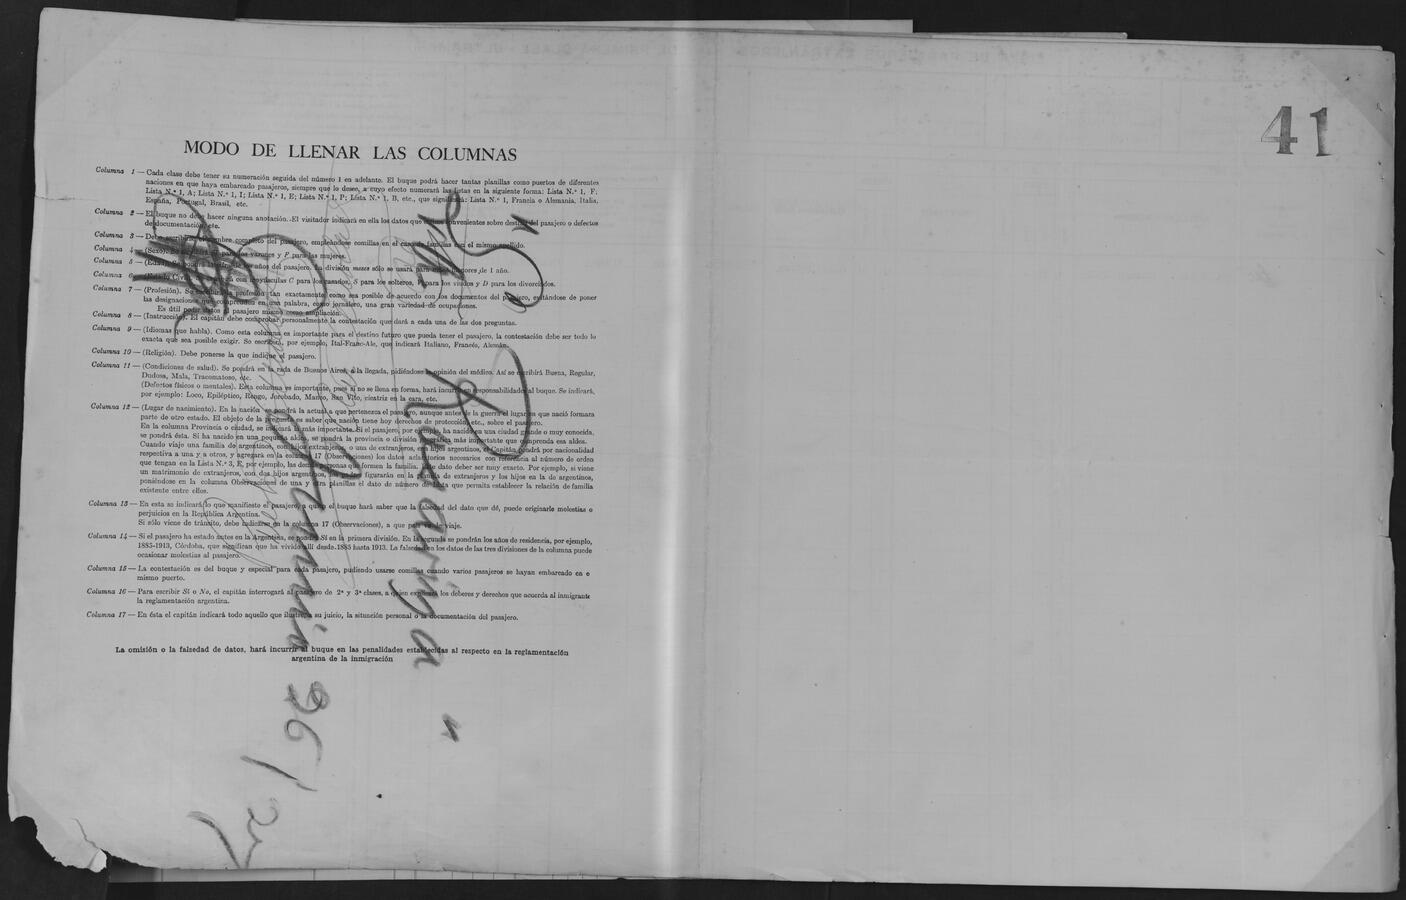 41
MODO DE LLENAR LAS COLUMNAS
Columna 1 — Cada clase debe tener su numeración seguida del número 1 en adelante. El buque podrá hacer tantas planillas como puertos de diferentes
naciones en que haya embarcado pasajeros, siempre que lo desee, a cuyo efecto numerará las listas en la siguiente forma: Lista N.º 1, F;
Lista N.º 1, A; Lista N.º 1, I; Lista N.º 1, E; Lista N.º 1, P; Lista N.º 1, B, etc., que significará: Lista N.º 1, Francia o Alemania, Italia,
España, Portugal, Brasil, etc.
Columna 2 — El buque no debe hacer ninguna anotación. El visitador indicará en ella los datos que convenientes sobre del pasajero o defectos
de documentación, etc.
Columna 3 — Debe nombre completo del pasajero, empleándose comillas en el caso de familias con el mismo apellido.
Columna 4 — (Sexo). varones y F para las mujeres.
Columna 5 — los años del pasajero. La división meses sólo se usará para menores de 1 año.
Columna 6 — (Estado Civil). con mayúsculas C para los casados, S para los solteros, V para los viudos y D para los divorciados.
Columna 7 — (Profesión). Se profesión tan exactamente como sea posible de acuerdo con los documentos del pasajero, evitándose de poner
las designaciones que comprenden en una palabra, como jornalero, una gran variedad de ocupaciones.
Es útil pedir datos al pasajero mismo como ampliación.
Columna 8 — (Instrucción). El capitán debe comprobar personalmente la contestación que dará a cada una de las dos preguntas.
Columna 9 — (Idiomas que habla). Como esta columna es importante para el destino futuro que pueda tener el pasajero, la contestación debe ser todo lo
exacta que sea posible exigir. Se escribirá, por ejemplo, Ital-Franc-Ale, que indicará Italiano, Francés, Alemán.
Columna 10 — (Religión). Debe ponerse la que indique el pasajero.
Columna 11 — (Condiciones de salud). Se pondrá en la rada de Buenos Aires, a la llegada, pidiéndose la opinión del médico. Así se escribirá Buena, Regular,
Dudosa, Mala, Tracomatoso, etc.
(Defectos físicos o mentales). Esta columna es importante, pues si no se llena en forma, hará incurrir en responsabilidades al buque. Se indicará,
por ejemplo: Loco, Epiléptico, Rengo, Jorobado, Manco, San Vito, cicatriz en la cara, etc.
Columna 12 — (Lugar de nacimiento). En la nación se pondrá la actual a que pertenezca el pasajero, aunque antes de la guerra el lugar en que nació formara
parte de otro estado. El objeto de la pregunta es saber que nación tiene hoy derechos de protección, etc., sobre el pasajero.
En la columna Provincia o ciudad, se indicará lo más importante. Si el pasajero, por ejemplo, ha nacido en una ciudad grande o muy conocida,
se pondrá ésta. Si ha nacido en una pequeña aldea, se pondrá la provincia o división geográfica más importante que comprenda esa aldea.
Cuando viaje una familia de argentinos, con hijos extranjeros, o una de extranjeros, con hijos argentinos, el Capitán pondrá por nacionalidad
respectiva a una y a otros, y agregará en la columna 17 (Observaciones) los datos aclaratorios necesarios con referencia al número de orden
que tengan en la Lista N.º 3, E, por ejemplo, las demás personas que formen la familia. Este dato deber ser muy exacto. Por ejemplo, si viene
un matrimonio de extranjeros, con dos hijos argentinos, los padres figurarán en la planilla de extranjeros y los hijos en la de argentinos,
poniéndose en la columna Observaciones de una y otra planillas el dato de número de lista que permita establecer la relación de familia
existente entre ellos.
Columna 13 — En esta se indicará lo que manifieste el pasajero, a quien el buque hará saber que la falsedad del dato que dé, puede originarle molestias o
perjuicios en la República Argentina.
Si sólo viene de tránsito, debe indicarse en la columna 17 (Observaciones), a que país va de viaje.
Columna 14 — Si el pasajero ha estado antes en la Argentina, se pondrá Sí en la primera división. En la segunda se pondrán los años de residencia, por ejemplo,
1885-1913, Córdoba, que significan que ha vivido allí desde 1885 hasta 1913. La falsedad en los datos de las tres divisiones de la columna puede
ocasionar molestias al pasajero.
Columna 15 — La contestación es del buque y especial para cada pasajero, pudiendo usarse comillas cuando varios pasajeros se hayan embarcado en e
mismo puerto.
Columna 16 — Para escribir Sí o No, el capitán interrogará al pasajero de 2ª y 3ª clases, a quien explicará los deberes y derechos que acuerda al inmigrante
la reglamentación argentina.
Columna 17 — En ésta el capitán indicará todo aquello que ilustre a su juicio, la situación personal o la documentación del pasajero.
La omisión o la falsedad de datos, hará incurrir al buque en las penalidades establecidas al respecto en la reglamentación
argentina de la inmigración